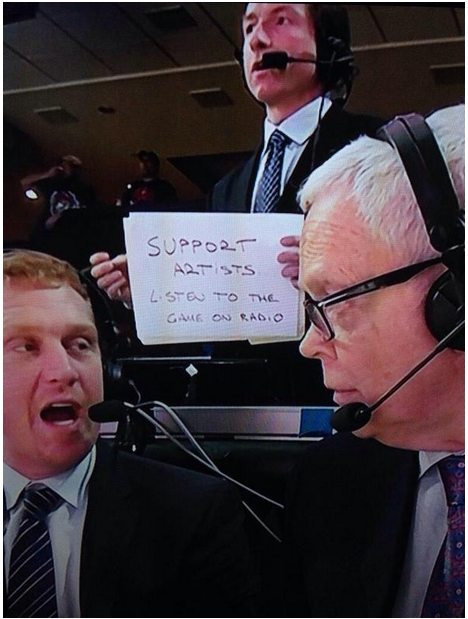 SUPPORT
ARTISTS
LISTEN TO THE
GAME ON RADIO